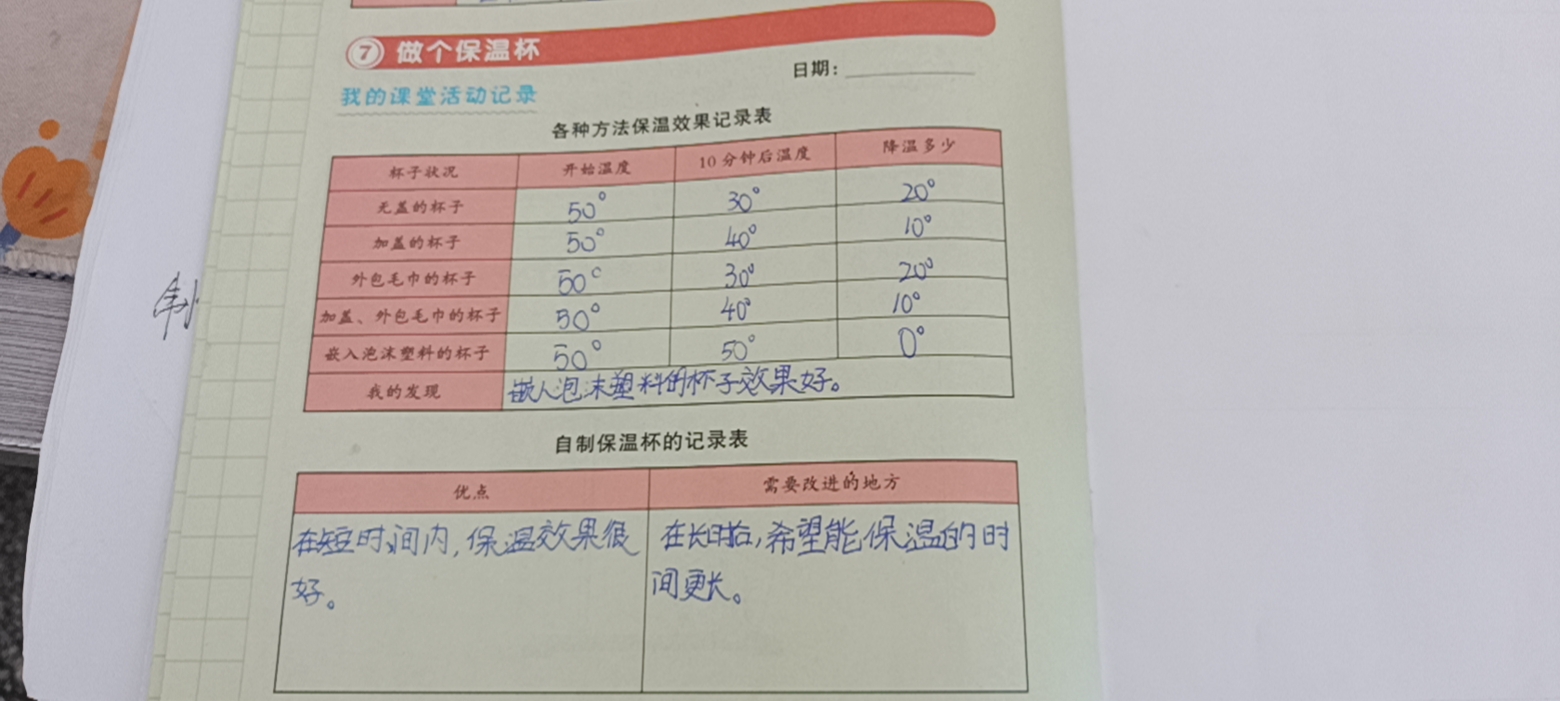 ⑦ 做个保温杯
日期：
我的课堂活动记录
各种方法保温效果记录表
杯子状况 开始温度 10分钟后温度 降温多少
无盖的杯子 50° 30° 20°
加盖的杯子 50° 40° 10°
外包毛巾的杯子 50° 30° 20°
加盖、外包毛巾的杯子 50° 40° 10°
嵌入泡沫塑料的杯子 50° 50° 0°
我的发现 嵌入泡沫塑料的杯子效果好。
自制保温杯的记录表
优点 需要改进的地方
在短时间内，保温效果很 在长时后，希望能保温的时
好。 间更长。
制